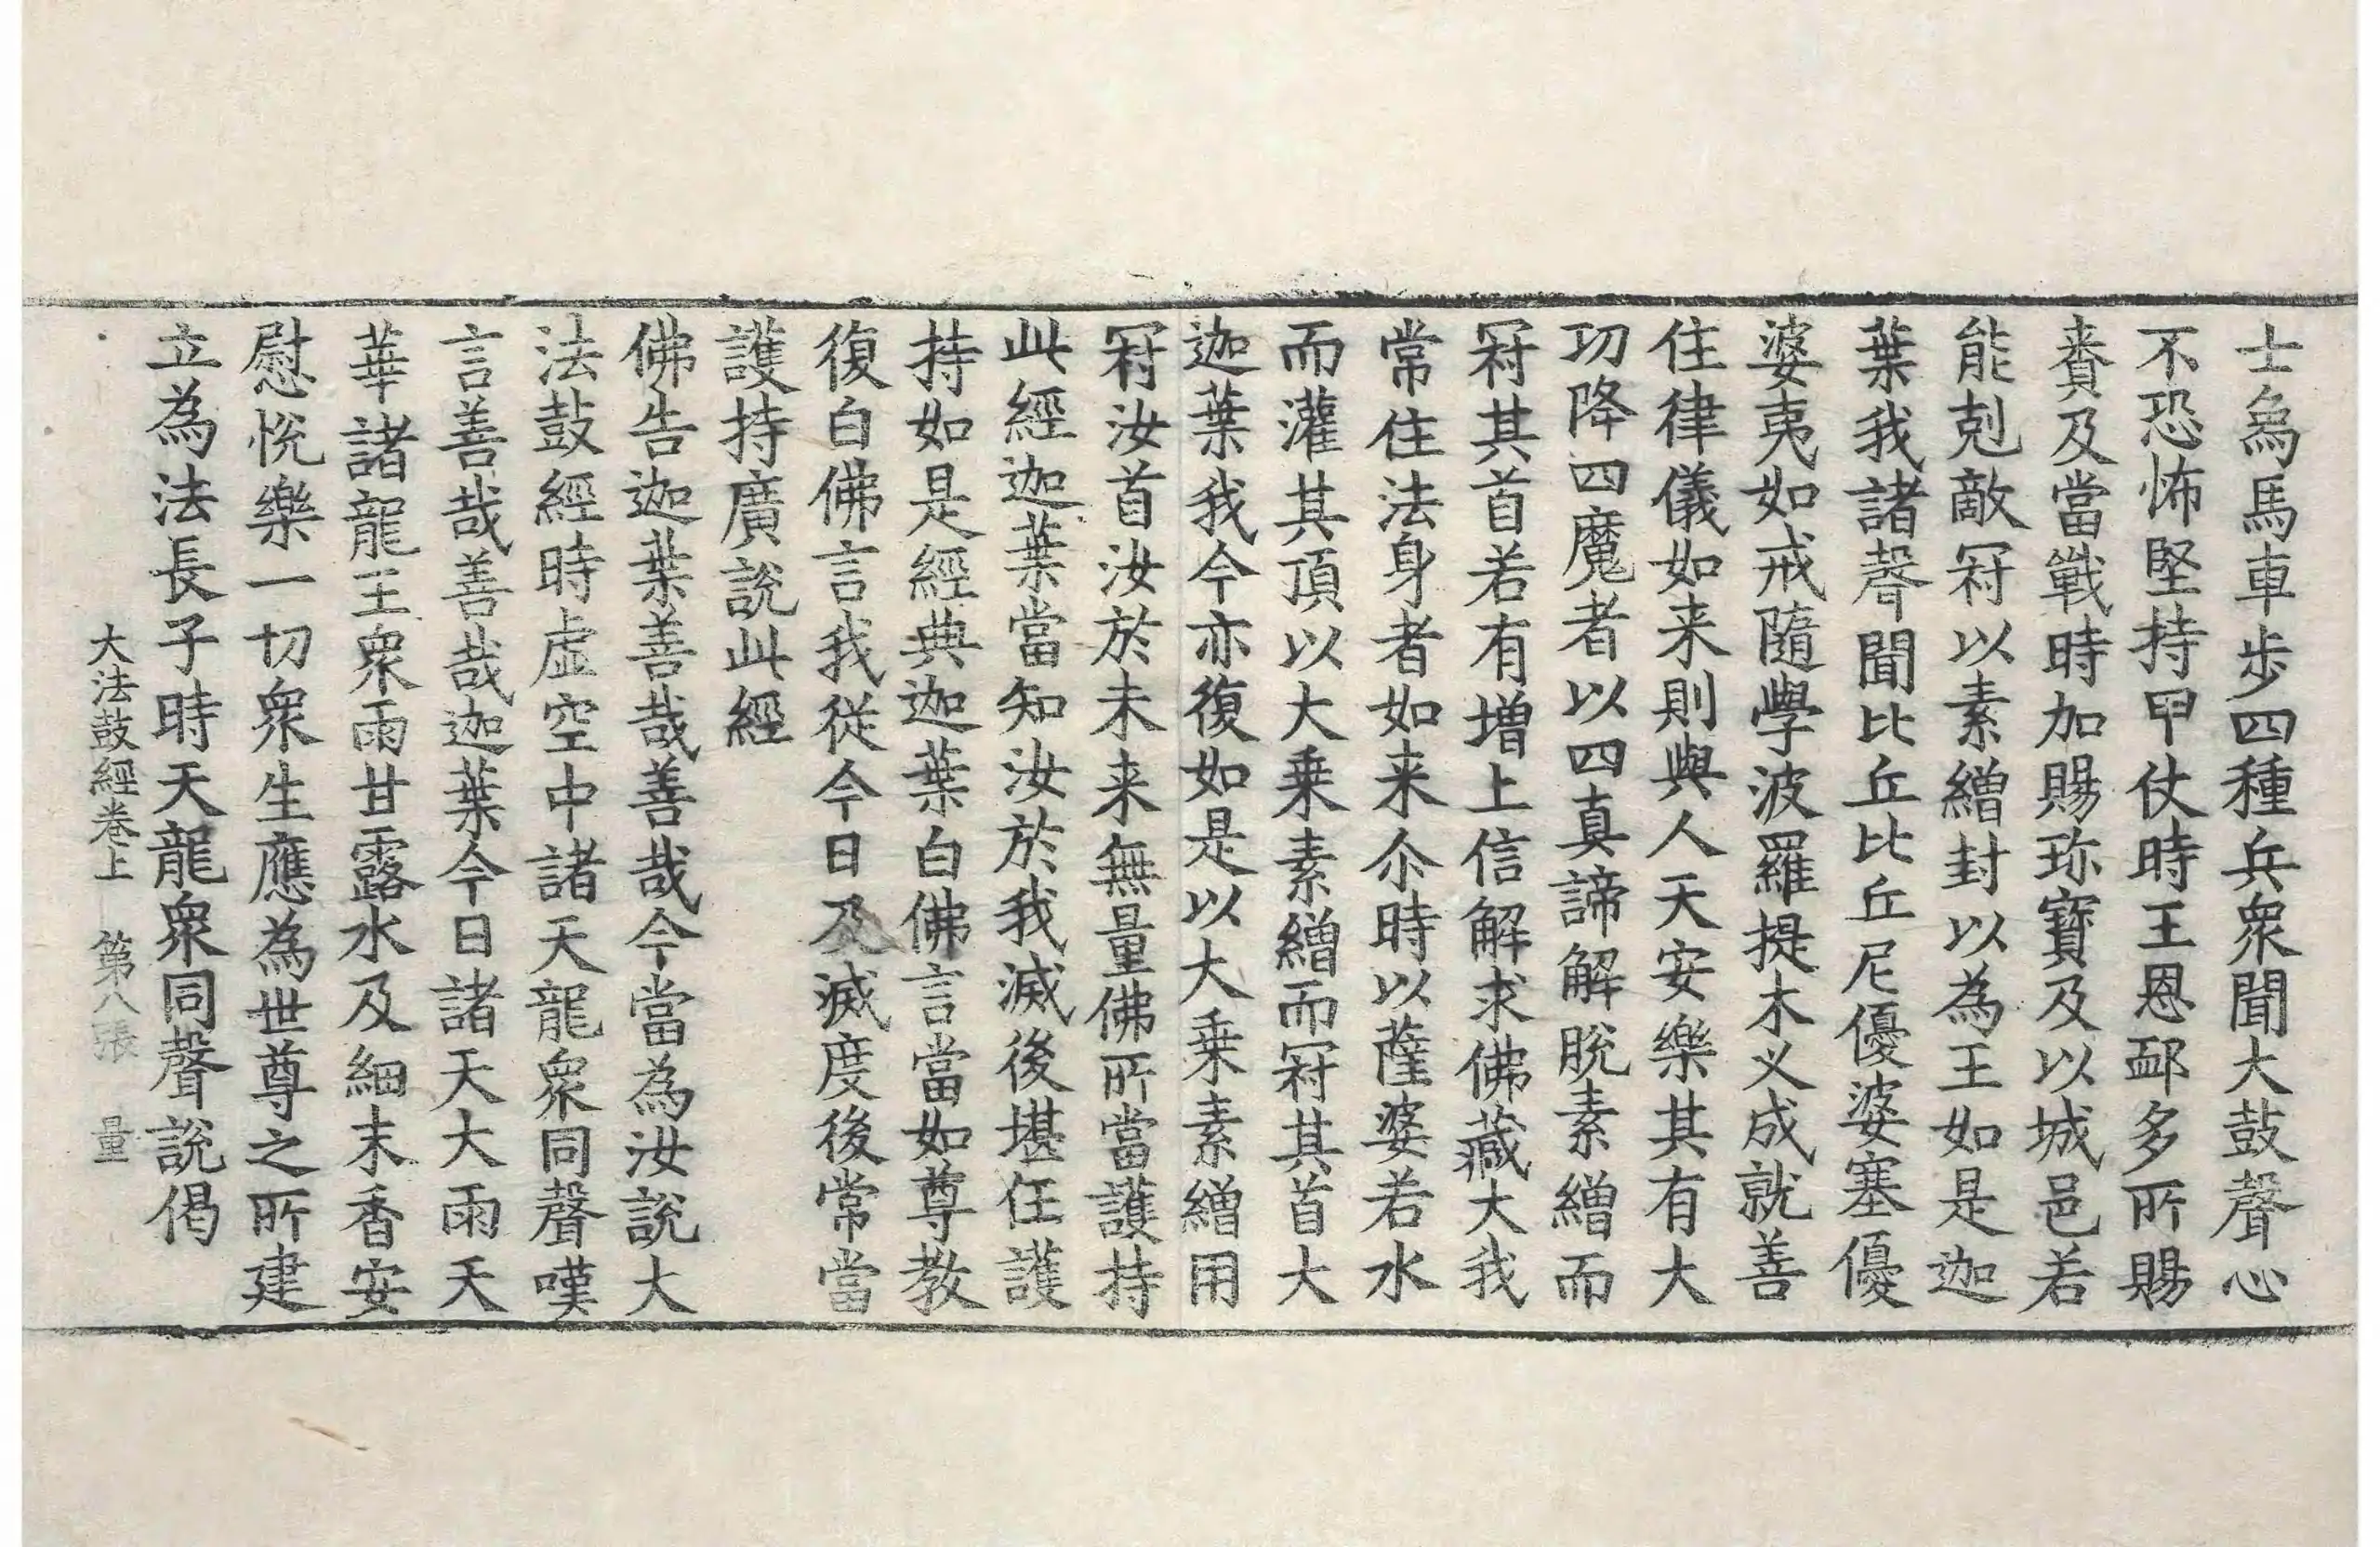 士烏馬車步四種兵衆聞大鼓聲心
不恐怖堅持甲仗時王恩䣃多所賜
賚及當戰時加賜珎寶及以城邑若
能剋敵冠以素繒封以為王如是迦
葉我諸聲聞比丘比丘尼優婆塞優
婆夷如戒隨學波羅提木义成就善
住律儀如来則與人天安樂其有大
功降四魔者以四真諦解脫素繒而
冠其首若有增上信解求佛藏大我
常住法身者如来尒時以薩婆若水
而灌其頂以大乗素繒而冠其首大
迦葉我今亦復如是以大乗素繒用
冠汝首汝於未来無量佛所當護持
此經迦葉當知汝於我滅後堪任護
持如是經典迦葉白佛言當如尊教
復白佛言我從今日及滅度後常當
護持廣說此經
佛告迦葉善哉善哉今當為汝說大
法鼓經時虛空中諸天龍衆同聲嘆
言善哉善哉迦葉今日諸天大雨天
華諸龍王衆雨甘露水及細末香安
慰悅樂一切衆生應為世尊之所建
立為法長子時天龍衆同聲說偈
大法鼓經卷上 第八張 量